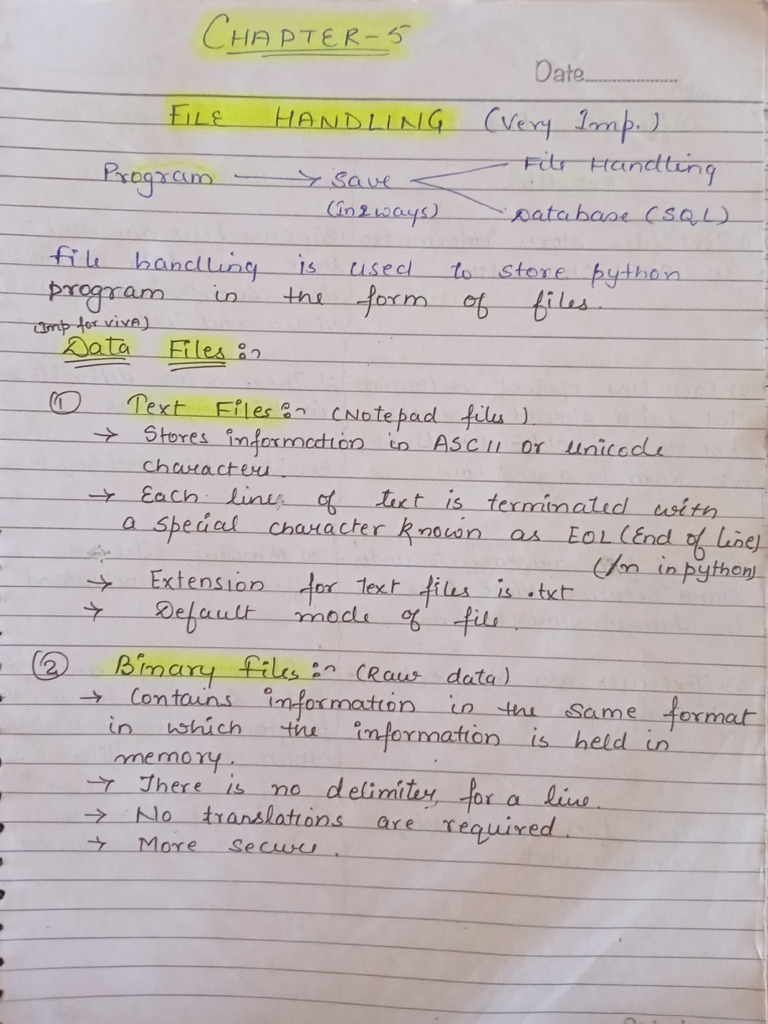 CHAPTER-5
Date
FILE HANDLING (Very Imp.)
Program → Save File Handling
(in 2 ways) Database (SQL)
File handling is used to store python
program in the form of files.
(Imp for VIVA)
Data Files :-
① Text Files :- (Notepad files)
→ Stores information in ASCII or unicode
characters.
→ Each line of text is terminated with
a special character known as EOL (End of line)
(/n in python)
→ Extension for text files is .txt
→ Default mode of file.
② Binary Files :- (Raw data)
→ Contains information in the same format
in which the information is held in
memory.
→ There is no delimiter, for a line.
→ No translations are required.
→ More secure.